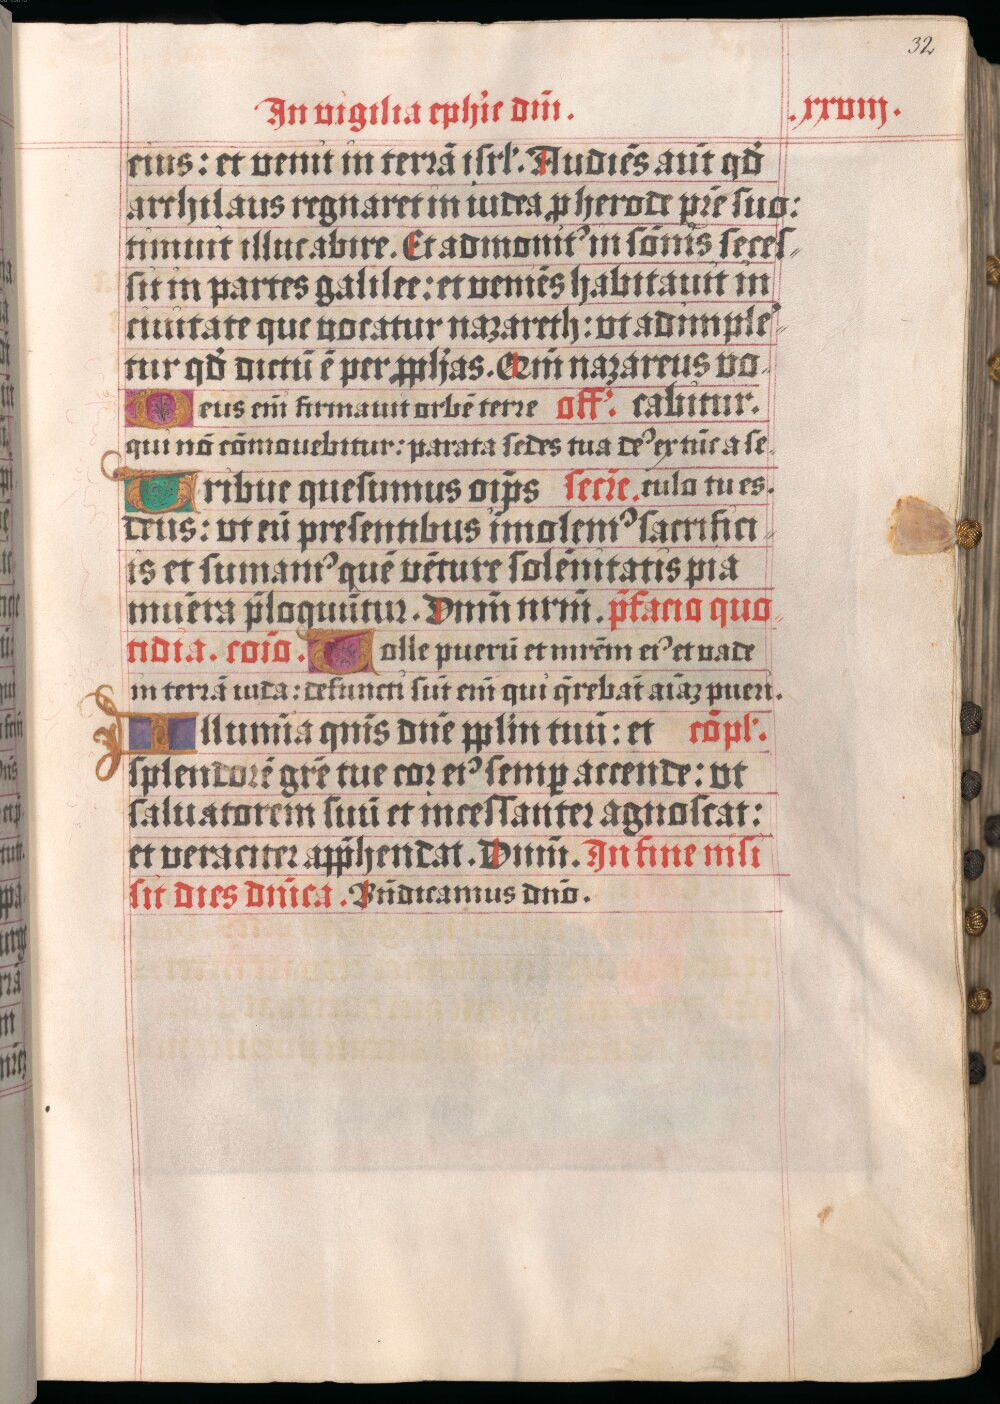 32
In vigilia eph̄ie dn̄i. .xxviij.
eius: et venit in terrā isrl'. Audiēs aūt qd̄
archilaus regnaret in iudea ꝓ herode pr̄e suo:
timuit illuc abire. Et admonitꝰ in sōnis seces-
sit in partes galilee: et veniēs habitauit in
ciuitate que vocatur nazareth: vt adimple-
tur qd̄ dictū ē per ꝓphās. Qm̄ nazareus vo-
Deus em̄ firmauit orbē terre off'. cabitur.
qui nō cōmouebitur: parata sedes tua deꝰ ex tūc a se-
Tribue quesumus oīps secr̄e. culo tu es.
deus: vt eū presentibus īmolemꝰ sacrifici-
is et sumamꝰ quē vēture solēnitatis pia
munēra p̄loquūtur. Dnm̄ nrm̄. p̄facio quo-
tidia. coīo. Tolle puerū et mr̄em eiꝰ et vade
in terrā iuda: defuncti sūt em̄ qui q̄rebāt aīaꝫ pueri.
Illumīa qn̄s dn̄e ꝓplm̄ tuū: et cōpl'.
splendorē gr̄e tue cor eiꝰ semꝑ accende: vt
saluatorem suū et incessanter agnoscat:
et veraciter app̄hendat. Dnm̄. In fine nisi
sit dies dn̄ica. Bn̄dicamus dn̄o.